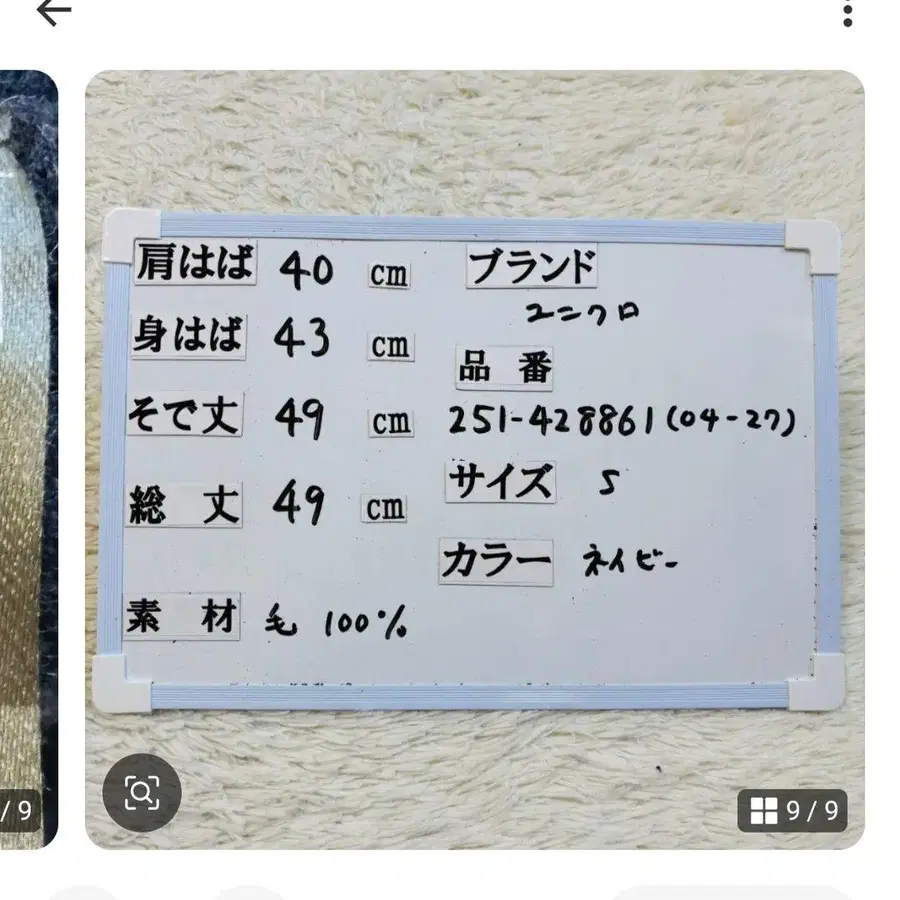 肩はば 40 cm
身はば 43 cm
そで丈 49 cm
総 丈 49 cm
素 材 毛 100%
ブランド
ユニクロ
品 番
251-428861(04-27)
サイズ S
カラー ネイビー
/ 9
9 / 9